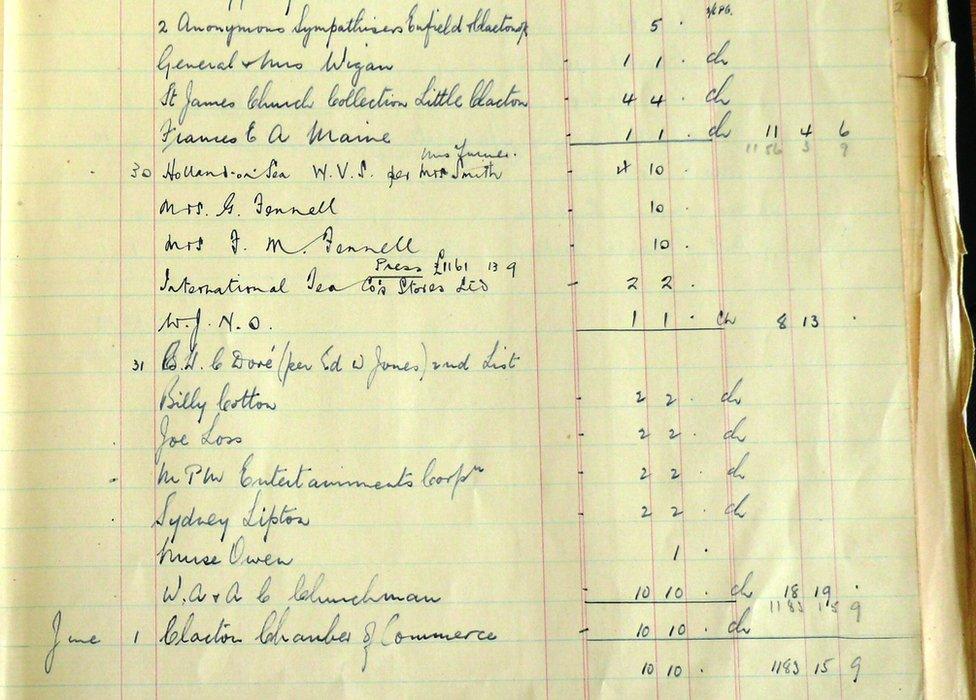 2 Anonymous Sympathisers Enfield & Clacton 5 .
General & Mrs Wigan - 1 1 . ch
St James Church Collection Little Clacton - 4 4 . ch
Frances E A Maine - 1 1 . ch 11 4 6
1156 3 9
30 Holland-on-Sea W.V.S. per Mrs Smith - 4 10 .
Mrs. G. Fennell - 10 .
Mrs F. M. Fennell - 10 .
Press £1161 13 9
International Tea Co's Stores Ltd - 2 2 .
W. J. N. O. 1 1 . ch 8 13 .
31 B. W. C Doré (per Ed W Jones) 2nd List
Billy Cotton - 2 2 . ch
Joe Loss - 2 2 . ch
M P M Entertainments Corpn - 2 2 . ch
Sydney Lipton - 2 2 . ch
Nurse Owen 1 .
W. A & A C Churchman - 10 10 . ch 18 19 .
1183 15 9
June 1 Clacton Chamber of Commerce - 10 10 . ch
10 10 . 1183 15 9